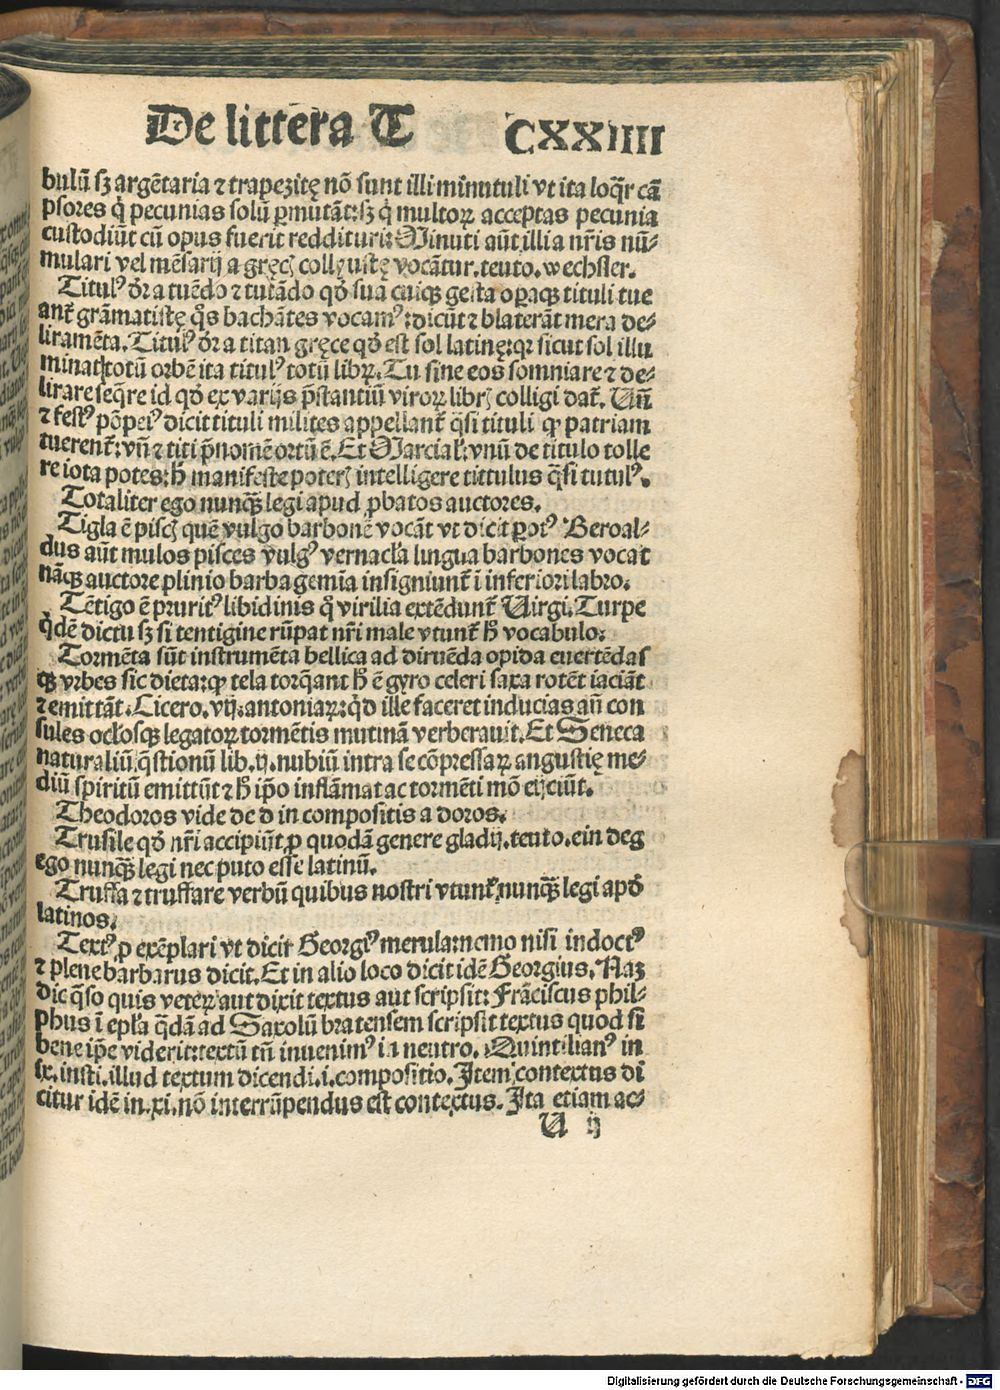 De littera T CXXIIII
bulū sꝫ argētaria ⁊ trapezitę nō sunt illi minutuli vt ita loq̄r cā
psores q̇ pecunias solū ꝑmutāt: sꝫ q̇ multoꝝ acceptas pecunia
custodiūt cū opus fuerit reddituri: Minuti aūt illi a nr̄is nū⸗
mulari vel mēsarij a gręcꝭ collꝫustę vocātur. teuto. wechsler.
Titulꝰ dr̄ a tuēdo ⁊ tutādo qđ sua cuiqꝫ gesta oꝑaqꝫ tituli tue
ant̄ grāmatistę q̄s bachātes vocamꝰ: dicūt ⁊ blaterāt mera de⸗
liramēta. Titulꝰ dr̄ a titan gręce qđ est sol latine: qꝛ sicut sol illu
minat totū orbē ita titulꝰ totū libꝝ. Tu sine eos somniare ⁊ de⸗
lirare seq̄re id qđ ex varijs p̄stantiū viroꝝ librꝭ colligi dat̄. Uñ
⁊ festꝰ pōpeiꝰ dicit tituli milites appellant̄ q̄si tituli ꝙ patriam
tuerent̄: vñ ⁊ titi p̄nomē ortū ē. Et Marcialꝭ: vnū de titulo tolle
re iota potes: h̄ manifeste poterꝭ intelligere tittulus q̄si tutulꝰ.
Totaliter ego nunqꝫ legi apud ꝓbatos auctores.
Tigla ē piscꝭ quē vulgo barbonē vocāt vt dicit ꝑotꝰ Beroal⸗
dus aūt mulos pisces vulgꝰ vernacl̄a lingua barbones vocat
nāqꝫ auctore plinio barba gemia insigniunt̄ ī inferiori labro.
Tētigo ē pruritꝰ libidinis q̄ virilia extēdunt̄ Uirgi. Turpe
q̇dē dictu sꝫ si tentigine rūpat nr̄i male vtunt̄ h̄ vocabulo:
Tormēta sūt instrumēta bellica ad diruēda opida euertēdas
qꝫ vrbes sic dieta: ꝙ tela torq̄ant h̄ ē gyro celeri saxa rotēt iaciāt
⁊ emittāt. Cicero. vij. antoniaꝝ: q̇d ille faceret inducias añ con
sules ocl̄osqꝫ legatoꝝ tormētis mutinā verberauit. Et Seneca
naturaliū q̄stionū lib. ij. nubiū intra se cōpressaꝝ angustię me⸗
diū spiritū emittūt ⁊ h̄ ip̄o inflāmat ac tormēti mō eijciūt.
Theodoros vide de d in compositis a doros.
Trusile qđ nr̄i accipiūt ꝓ quodā genere gladij. teuto. ein deg
ego nunqꝫ legi nec puto esse latinū.
Truffa ⁊ truffare verbū quibus nostri vtunt̄ nunqꝫ legi apđ
latinos.
Textꝰ ꝓ exēplari vt dicit Georgiꝰ merula: nemo nisi indoctꝰ
⁊ plene barbarus dicit. Et in alio loco dicit idē Georgius. Naꝫ
dic q̄so quis veteꝝ aut dixit textus aut scripsit: Frāciscus phil⸗
phus ī epl̄a q̄dā ad Saxolū bratensem scripsit textus quod si
bene ip̄e viderit: textū tn̄ inuenimꝰ in neutro. Quintilianꝰ in
ix. insti. illud textum dicendi. i. compositio. Item contextus di
citur idē in. xi. nō interrūpendus est contextus. Ita etiam ac⸗
U ij
Digitalisierung gefördert durch die Deutsche Forschungsgemeinschaft - DFG